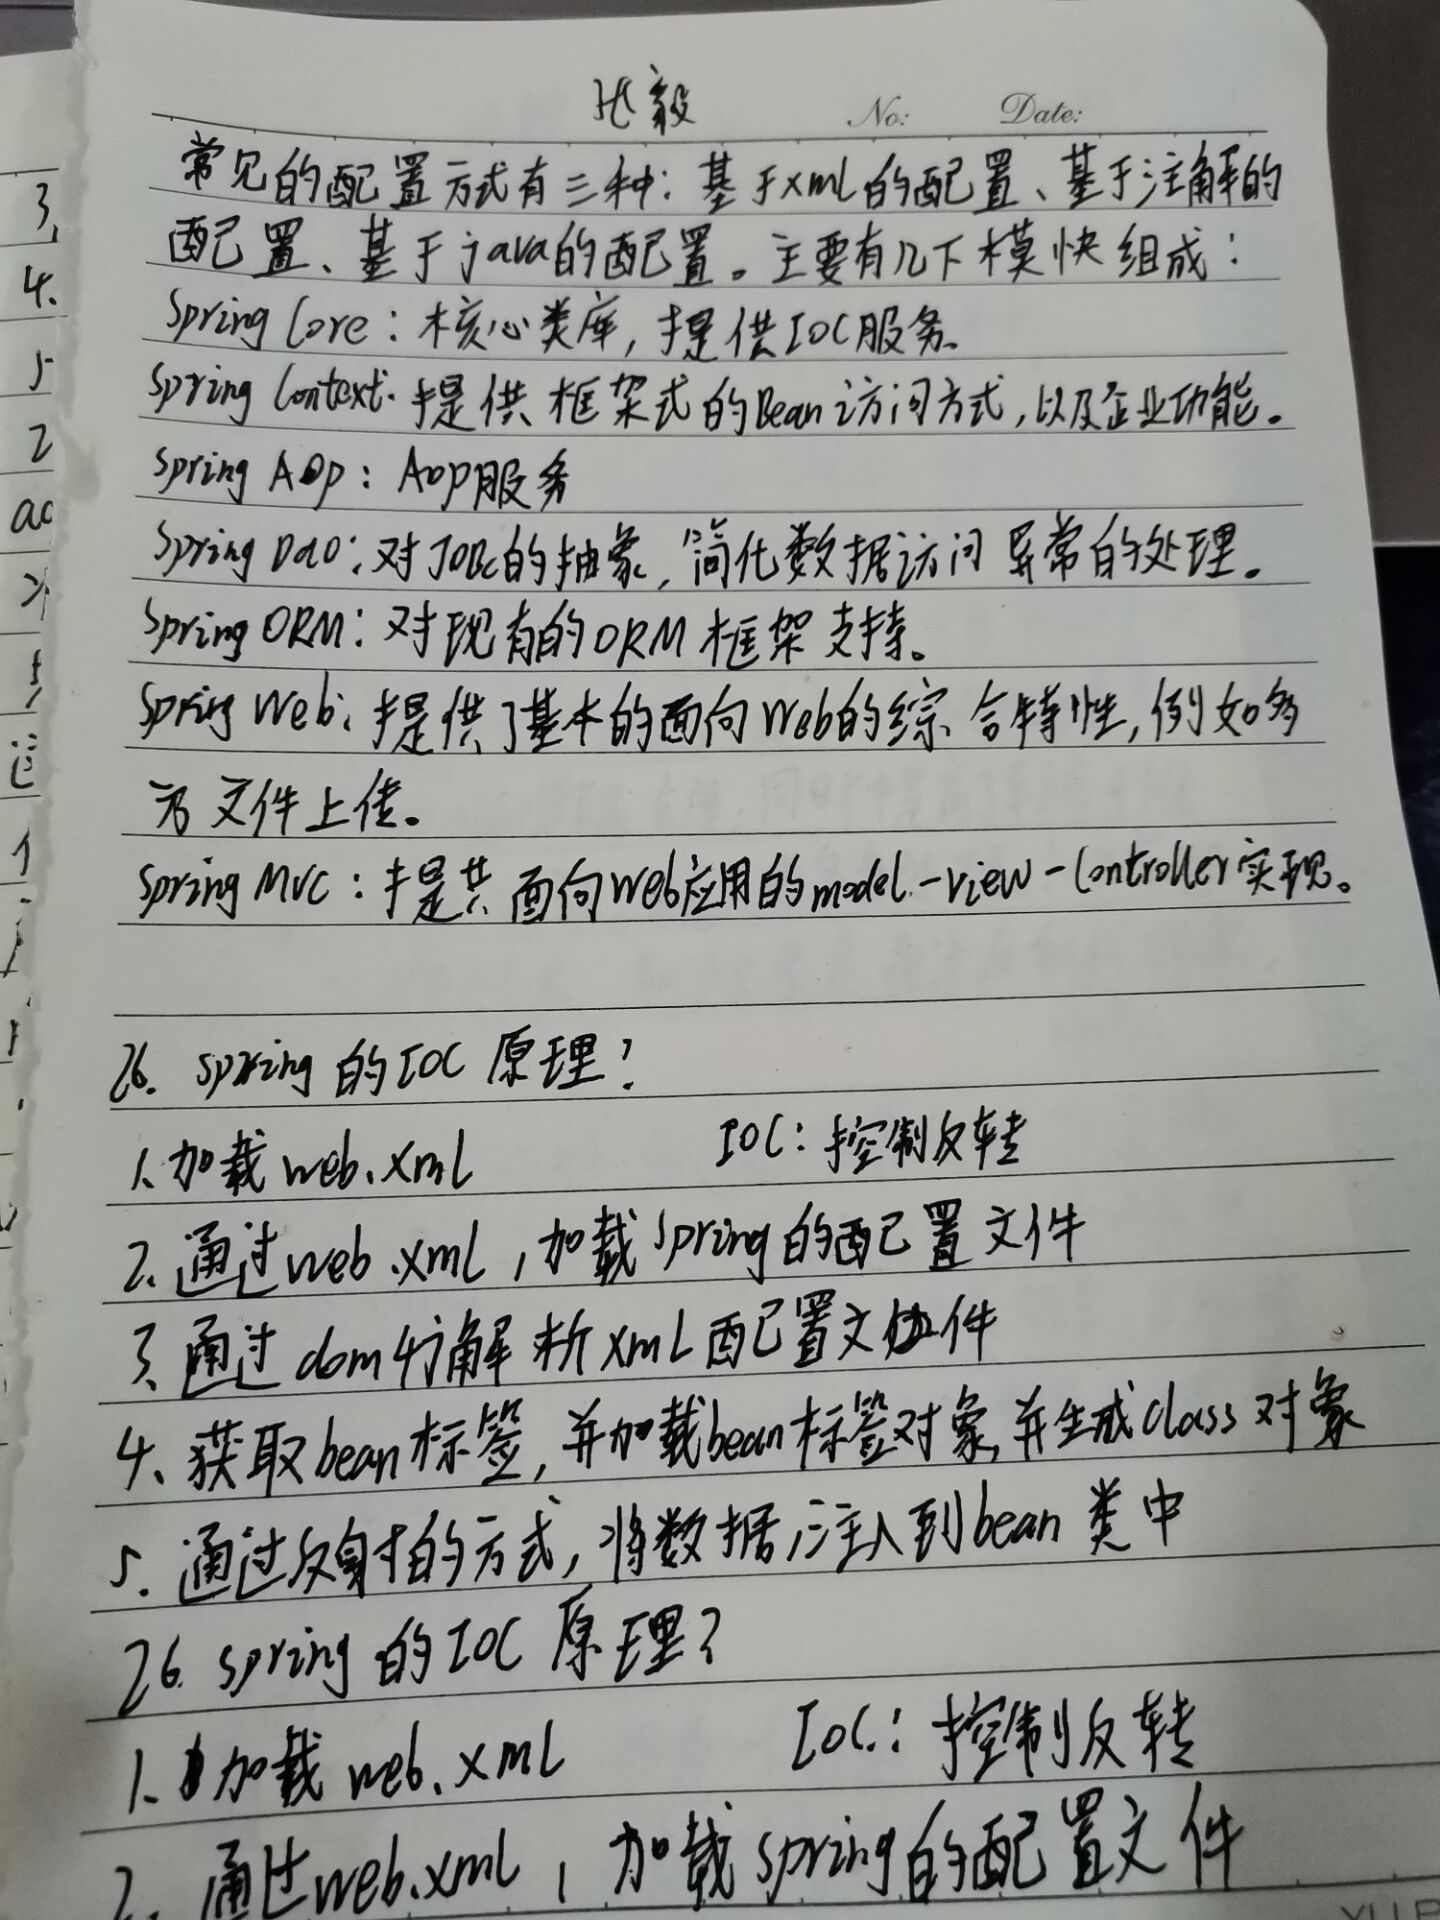 毅 No: Date:
常见的配置方式有三种：基于xml的配置、基于注解的
配置、基于java的配置。主要有几下模快组成：
Spring Core：核心类库，提供IOC服务。
Spring Context. 提供框架式的Bean访问方式，以及企业功能。
Spring AOp：Aop服务
Spring DaO：对JDBc的抽象，简化数据访问异常的处理。
Spring ORM：对现有的ORM框架支持。
Spring Web：提供了基本的面向Web的综合特性，例如多
方文件上传。
Spring MVC：提共面向Web应用的model-view-Controller实现。
26. spring的IOC原理？
1、加载web.xml IOC：控制反转
2、通过web.xml，加载spring的配置文件
3、通过dom4j解析xml配置文件
4、获取bean标签，并加载bean标签对象，并生成class对象
5. 通过反射的方式，将数据注入到bean类中
26. spring的IOC原理？
1、加载web.xml IOC：控制反转
2. 通过web.xml，加载spring的配置文件
3.
4.
5
2
ac
1